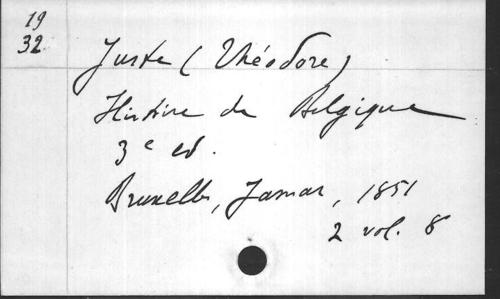 19
32
Juste (Théodore)
Histoire de Belgique
3e ed.
Bruxelles, Jamar, 1851
2 vol. 8